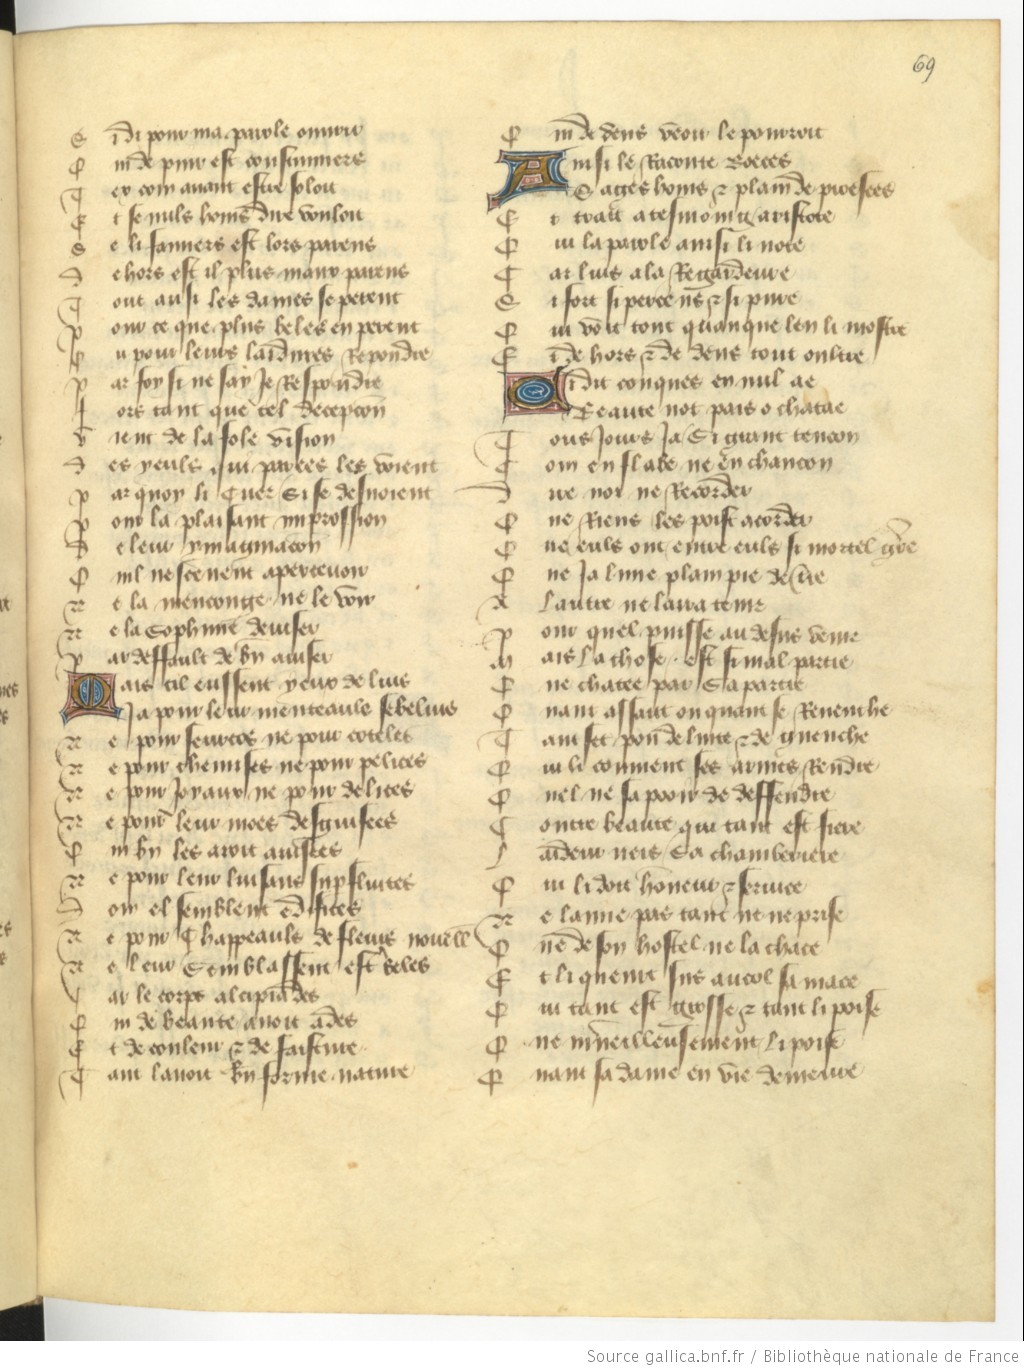 69
S idi pour ma parole ouurir
Q ui de puir est coustumiers
T ex com auant estre soloit
E t se nuls homs dire vouloit
Q ue li fumiers est lors parens
D ehors est il plus maux parens
T out ausi les dames se perent
P our ce que plus beles en perent
O u pour leurs laidures Repondre
P ar foy si ne say Je Respondre
F ors tant que tel decepcon
V ient de la fole vision
D es yeuls qui parees les voient
P ar quoy li Cuer Si se desuoient
P our la plaisant impression
D e leur ymaginacon
Q uil ne sceuent aperceuoir
N e la menconge ne le voir
N e la Sophime deuiser
P ar deffault de bn auiser
M ais cil eussent yeux de lins
Ja pour leur menteauls sebelins
N e pour seurcos ne pour coteles
N e pour chemises ne pour pelices
N e pour Joyaux ne pour delices
N e pour leur moes desguisees
Q ui bn les aroit auisees
N e pour leur luisans supfluites
D ont el semblent edifices
N e pour Chappeauls de fleurs nouell
N e leur Semblassent estre beles
C ar le corps alcipiades
Q ui de beaute auoit ades
E t de couleur & de faicture
T ant lauoit bn forme nature
Q ui dedens veoir le pourroit
A insi le Raconte Boeces
Sages homs & plain de proesces
E t trait a tesmoing aristote
Q ui la parole ainsi li note
C ar lins a la Regardeure
S i fort si percant & si pure
Q ui voit tout quanque len li mostre
E t de hors & de dens tout oultre
S i dit conques en nul ae
Beaute not pais o chatae
T ous Jours Ja Si grant tencon
C om en flabe ne en chancon
D ire noi ne Recorder
Q ue Riens les poist acorder
Q ue euls ont entre euls si mortel gre
Q ue Ja lune plain pie de tre
A lautre ne laira tenir
P our quel puisse au desus venir
M ais la chose est si mal partie
Q ue chatee par Sa partie
Q uant assaut ou quant se Reuenche
T ant set pou de luite & de guenche
Q ui li couuient ses armes Rendre
Q uel ne sa pooir de deffendre
C ontre beaute qui tant est fiere
L aideur neis Sa chamberiere
Q ui li doit honneur & seruice
N e laime pas tant ne ne prise
Q ue de son hostel ne la chace
E t li queurt sus au col sa mace
Q ui tant est grosse & tant li poise
Q ue mueilleusement li poise
Q uant sa dame en vie demeure
Source gallica.bnf.fr / Bibliothèque nationale de France